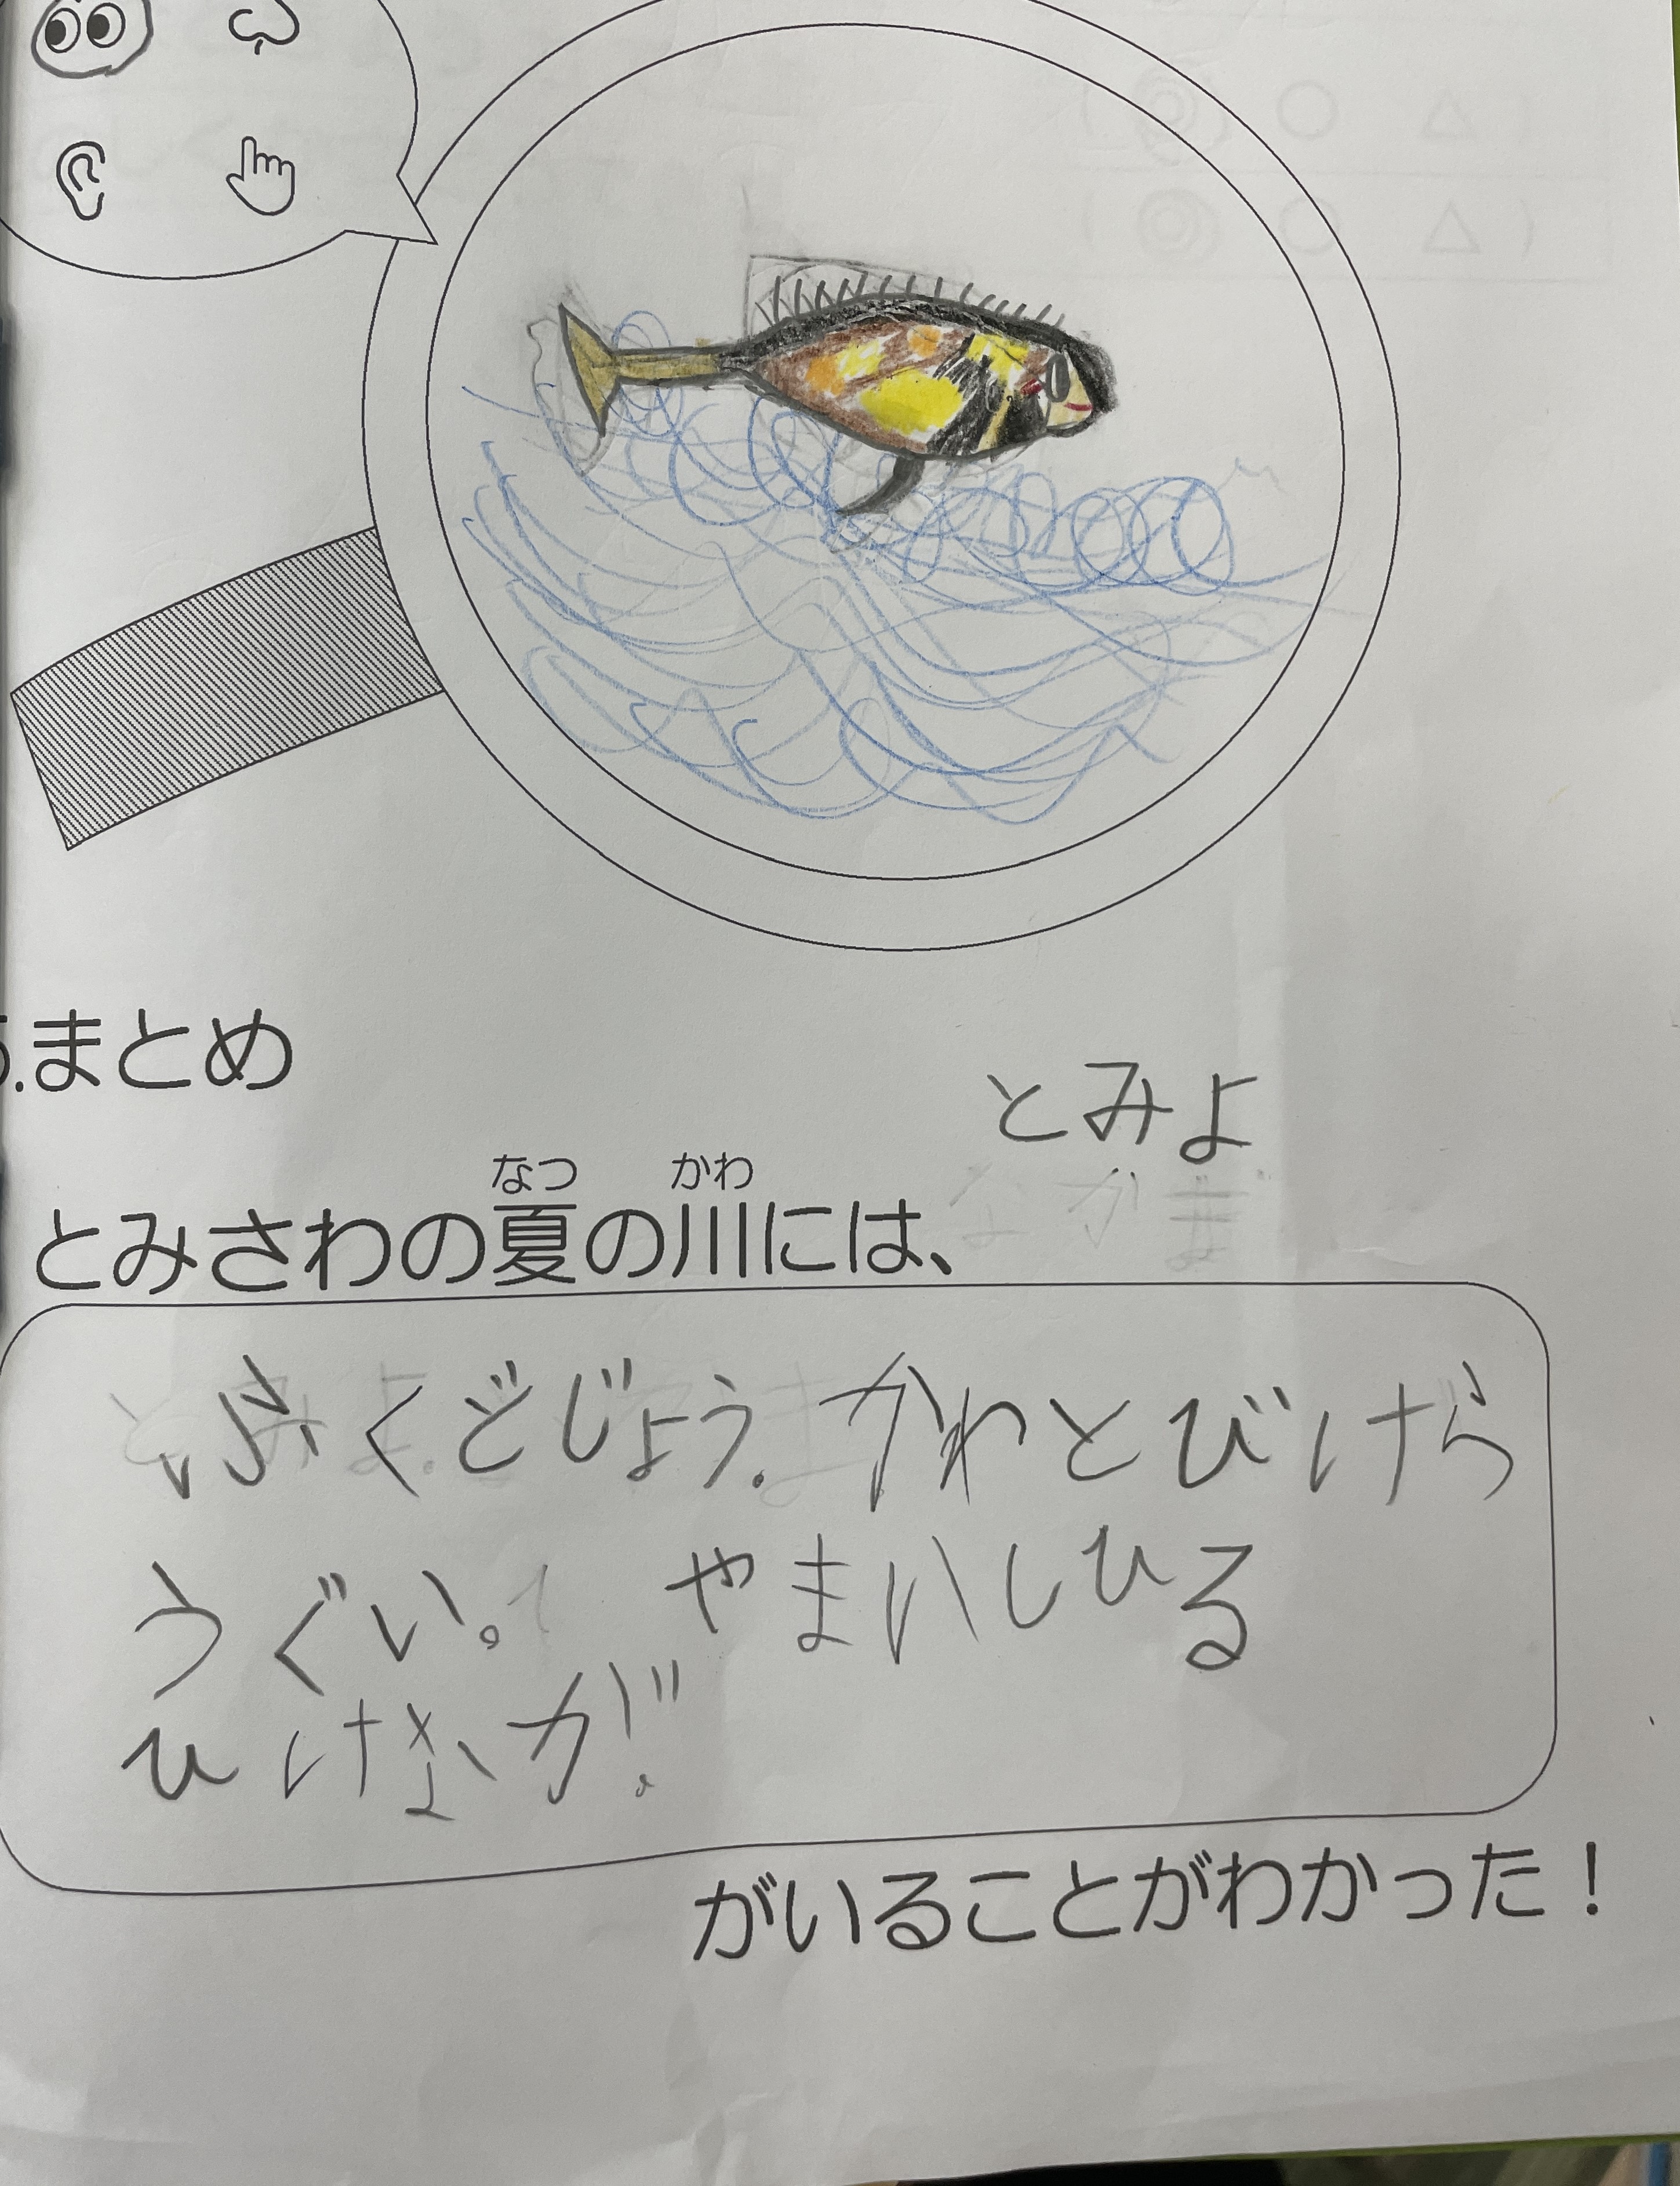 .まとめ
とみよ
なつ かわ
とみさわの夏の川には、
ふくどじょう. かわとびけら
うぐい。 やまいしひる
ひげなが.
がいることがわかった！